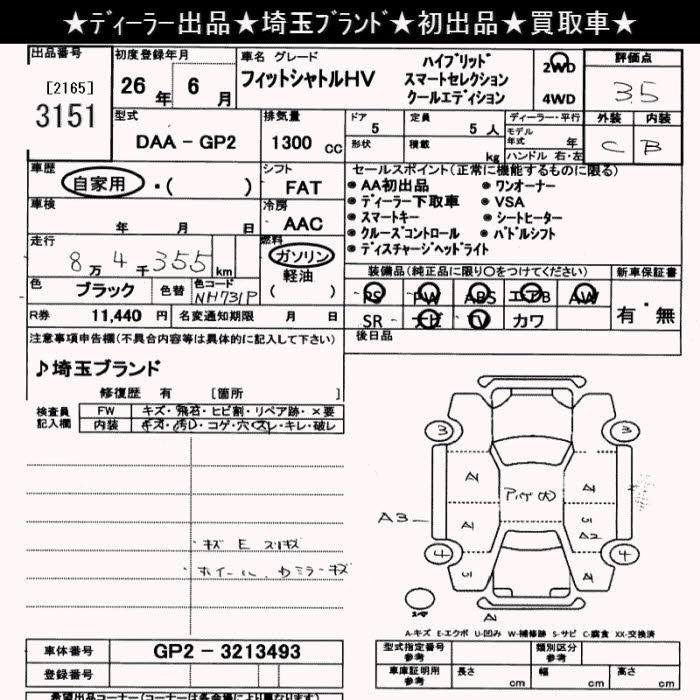 ★ディーラー出品★埼玉ブランド★初出品★買取車★
出品番号 初度登録年月 車名 グレード 評価点
[2165] 3151
26年 6月
フィットシャトルHV
ハイブリッド
スマートセレクション
クールエディション
2WD
4WD
3.5
型式 排気量 ドア 定員 ディーラー・平行 外装 内装
DAA－GP2 1300cc 5 5人 モデル年式 年 C B
形状 積載 kg ハンドル 右・左
車歴 シフト セールスポイント(正常に機能するものに限る)
自家用・( ) FAT
●AA初出品 ●ワンオーナー
●ディーラー下取車 ●VSA
●スマートキー ●シートヒーター
●クルーズコントロール ●パドルシフト
●ディスチャージヘッドライト
車検 年 月 日 冷房 AAC
走行 8万4千355km 燃料 ガソリン 軽油 ( )
装備品(純正品に限り○をつけてください) 新車保証書
色 ブラック 色替 色コード NH731P
PS PW ABS エアB AW 有・無
SR ナビ TV カワ
R券 11,440円 名変通知期限 月 日
後日品
注意事項申告欄(不具合内容等は具体的に記入して下さい)
♪埼玉ブランド
修復歴 有 [箇所
検査員記入欄 FW キズ・飛石・ヒビ割・リペア跡・×要
内装 キズ・汚レ・コゲ・穴・スレ・キレ・破レ
・キズ E スリキズ
・ホイール、カミラーキズ
3 3
A1 A1
A3 A1 A2
4 4
A1
A-キズ E-エクボ U-凹み W-補修跡 S-サビ C-腐食 XX-交換済
車体番号 GP2－3213493
登録番号
型式指定番号 参考 類別区分 参考
車庫証明用 参考 長さ cm 幅 cm 高さ cm
希望出品コーナー(コーナーは各会場により異なります)